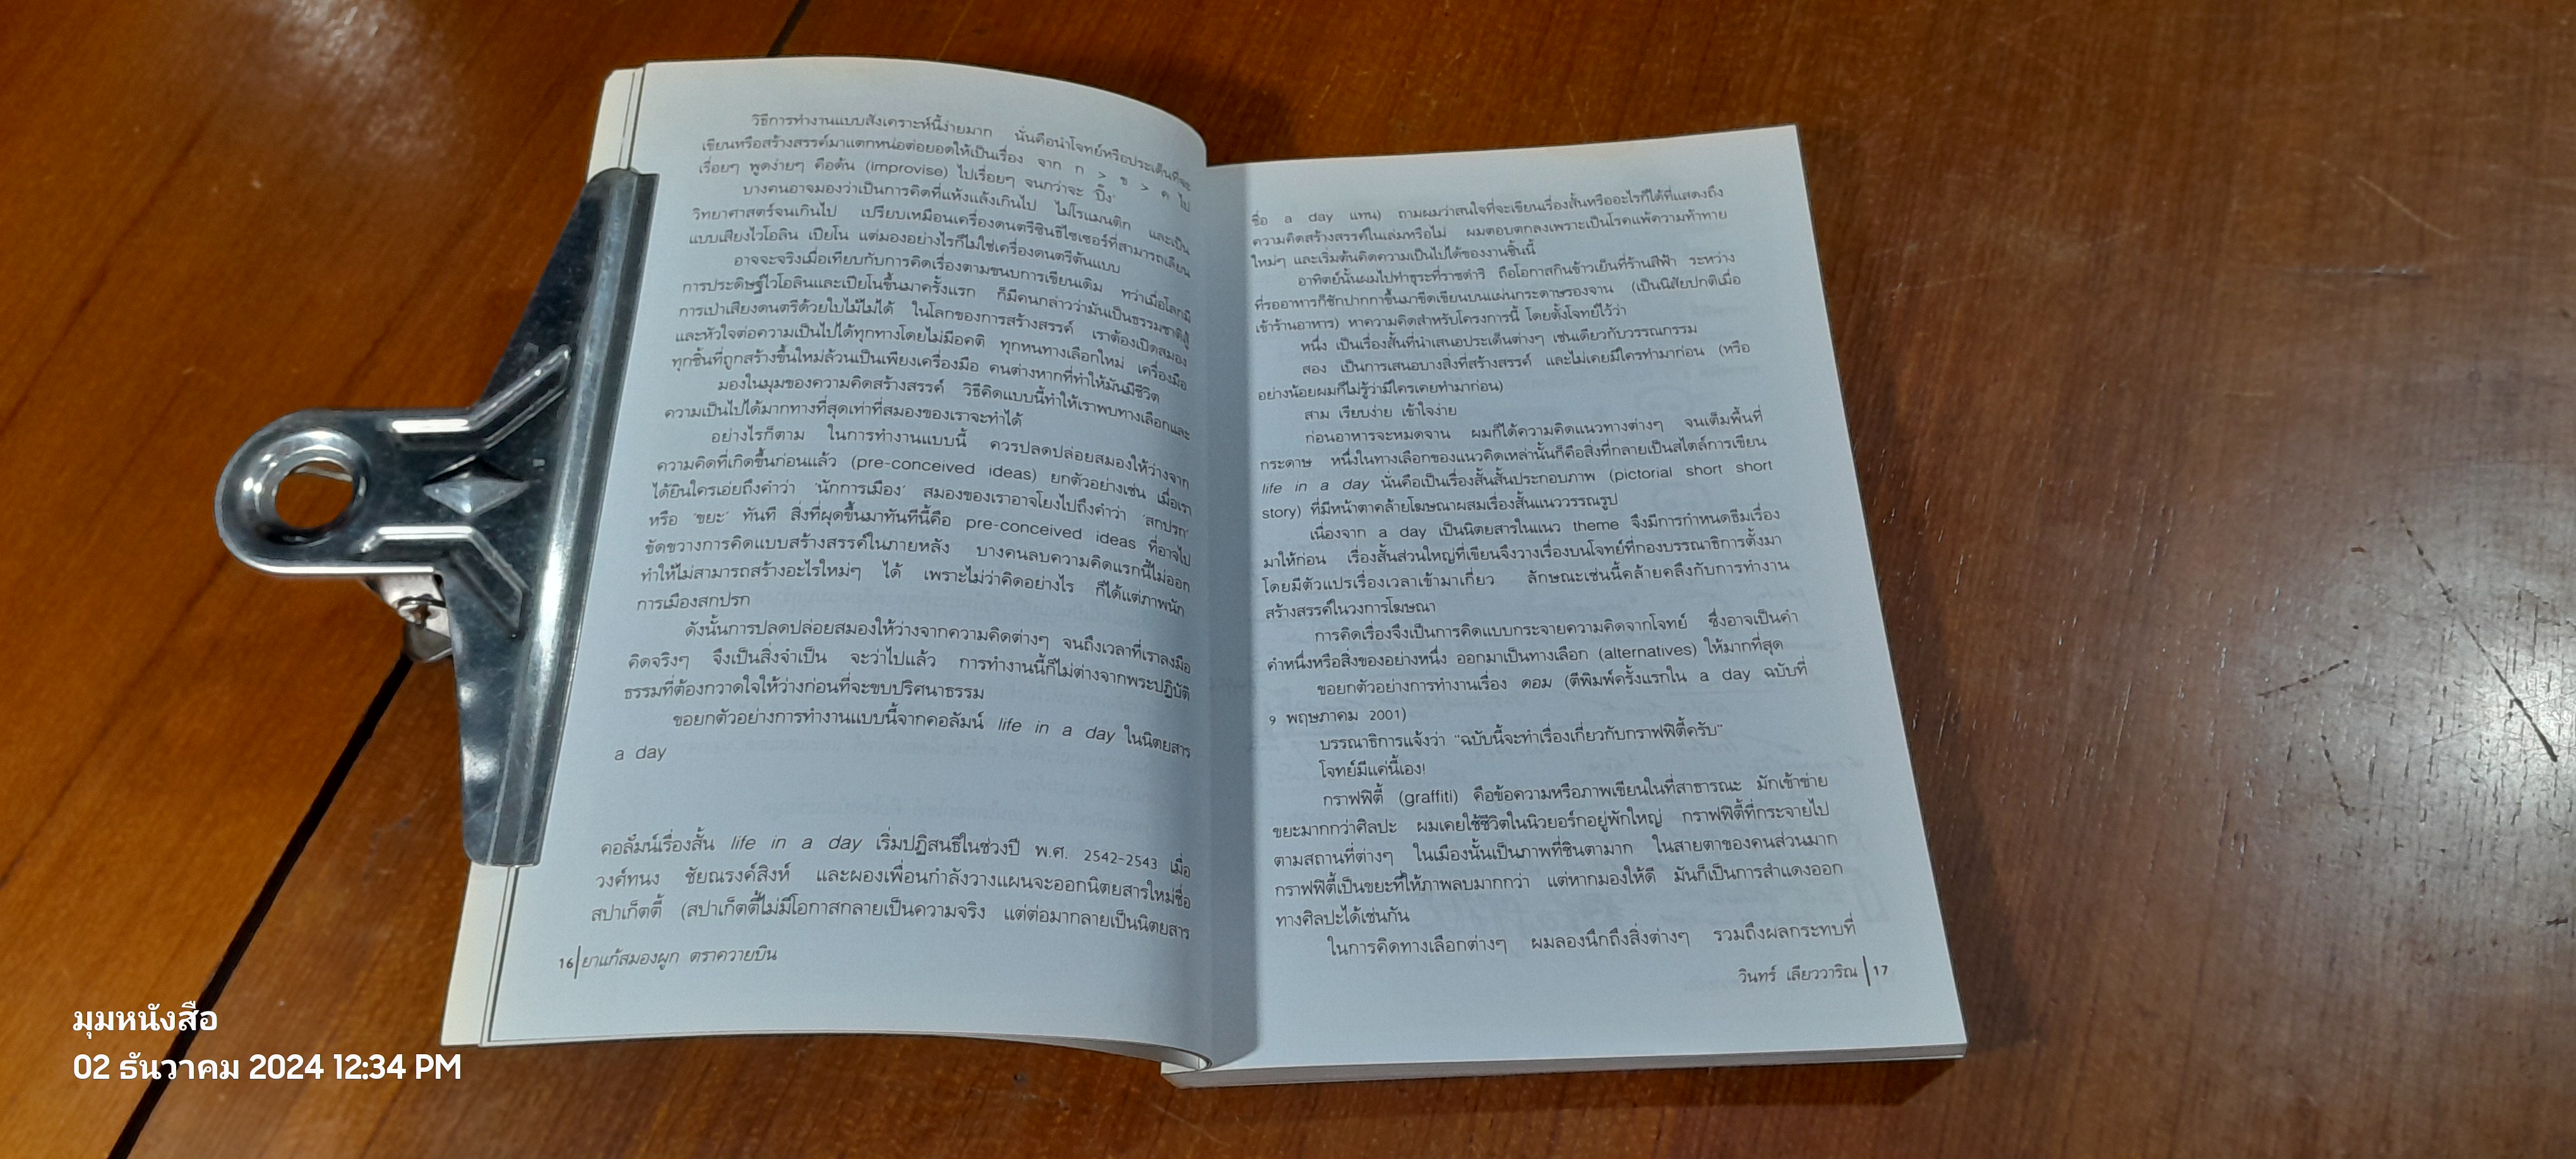 วิธีการทำงานแบบสังเคราะห์นี้ง่ายมาก นั่นคือนำโจทย์หรือประเด็นที่จะ
เขียนหรือสร้างสรรค์มาแตกหน่อต่อยอดให้เป็นเรื่อง จาก ก > ข > ค ไป
เรื่อยๆ พูดง่ายๆ คือด้น (improvise) ไปเรื่อยๆ จนกว่าจะ 'ปิ๊ง'
บางคนอาจมองว่าเป็นการคิดที่แห้งแล้งเกินไป ไม่โรแมนติก และเป็น
วิทยาศาสตร์จนเกินไป เปรียบเหมือนเครื่องดนตรีซินธิไซเซอร์ที่สามารถเลียน
แบบเสียงไวโอลิน เปียโน แต่มองอย่างไรก็ไม่ใช่เครื่องดนตรีต้นแบบ
อาจจะจริงเมื่อเทียบกับการคิดเรื่องตามขนบการเขียนเดิม ทว่าเมื่อโลกมี
การประดิษฐ์ไวโอลินและเปียโนขึ้นมาครั้งแรก ก็มีคนกล่าวว่ามันเป็นธรรมชาติสู้
การเป่าเสียงดนตรีด้วยใบไม้ไม่ได้ ในโลกของการสร้างสรรค์ เราต้องเปิดสมอง
และหัวใจต่อความเป็นไปได้ทุกทางโดยไม่มีอคติ ทุกหนทางเลือกใหม่ เครื่องมือ
ทุกชิ้นที่ถูกสร้างขึ้นใหม่ล้วนเป็นเพียงเครื่องมือ คนต่างหากที่ทำให้มันมีชีวิต
มองในมุมของความคิดสร้างสรรค์ วิธีคิดแบบนี้ทำให้เราพบทางเลือกและ
ความเป็นไปได้มากทางที่สุดเท่าที่สมองของเราจะทำได้
อย่างไรก็ตาม ในการทำงานแบบนี้ ควรปลดปล่อยสมองให้ว่างจาก
ความคิดที่เกิดขึ้นก่อนแล้ว (pre-conceived ideas) ยกตัวอย่างเช่น เมื่อเรา
ได้ยินใครเอ่ยถึงคำว่า 'นักการเมือง' สมองของเราอาจโยงไปถึงคำว่า 'สกปรก'
หรือ 'ขยะ' ทันที สิ่งที่ผุดขึ้นมาทันทีนี้คือ pre-conceived ideas ที่อาจไป
ขัดขวางการคิดแบบสร้างสรรค์ในภายหลัง บางคนลบความคิดแรกนี้ไม่ออก
ทำให้ไม่สามารถสร้างอะไรใหม่ๆ ได้ เพราะไม่ว่าคิดอย่างไร ก็ได้แต่ภาพนัก
การเมืองสกปรก
ดังนั้นการปลดปล่อยสมองให้ว่างจากความคิดต่างๆ จนถึงเวลาที่เราลงมือ
คิดจริงๆ จึงเป็นสิ่งจำเป็น จะว่าไปแล้ว การทำงานนี้ก็ไม่ต่างจากพระปฏิบัติ
ธรรมที่ต้องกวาดใจให้ว่างก่อนที่จะขบปริศนาธรรม
ขอยกตัวอย่างการทำงานแบบนี้จากคอลัมน์ life in a day ในนิตยสาร
a day
คอลัมน์เรื่องสั้น life in a day เริ่มปฏิสนธิในช่วงปี พ.ศ. 2542-2543 เมื่อ
วงศ์ทนง ชัยณรงค์สิงห์ และผองเพื่อนกำลังวางแผนจะออกนิตยสารใหม่ชื่อ
สปาเก็ตตี้ (สปาเก็ตตี้ไม่มีโอกาสกลายเป็นความจริง แต่ต่อมากลายเป็นนิตยสาร
16 ยาแก้สมองผูก ตราควายบิน
ชื่อ a day แทน) ถามผมว่าสนใจที่จะเขียนเรื่องสั้นหรืออะไรก็ได้ที่แสดงถึง
ความคิดสร้างสรรค์ในเล่มหรือไม่ ผมตอบตกลงเพราะเป็นโรคแพ้ความท้าทาย
ใหม่ๆ และเริ่มต้นคิดความเป็นไปได้ของงานชิ้นนี้
อาทิตย์นั้นผมไปทำธุระที่ราชดำริ ถือโอกาสกินข้าวเย็นที่ร้านสีฟ้า ระหว่าง
ที่รออาหารก็ชักปากกาขึ้นมาขีดเขียนบนแผ่นกระดาษรองจาน (เป็นนิสัยปกติเมื่อ
เข้าร้านอาหาร) หาความคิดสำหรับโครงการนี้ โดยตั้งโจทย์ไว้ว่า
หนึ่ง เป็นเรื่องสั้นที่นำเสนอประเด็นต่างๆ เช่นเดียวกับวรรณกรรม
สอง เป็นการเสนอบางสิ่งที่สร้างสรรค์ และไม่เคยมีใครทำมาก่อน (หรือ
อย่างน้อยผมก็ไม่รู้ว่ามีใครเคยทำมาก่อน)
สาม เรียบง่าย เข้าใจง่าย
ก่อนอาหารจะหมดจาน ผมก็ได้ความคิดแนวทางต่างๆ จนเต็มพื้นที่
กระดาษ หนึ่งในทางเลือกของแนวคิดเหล่านั้นก็คือสิ่งที่กลายเป็นสไตล์การเขียน
life in a day นั่นคือเป็นเรื่องสั้นสั้นประกอบภาพ (pictorial short short
story) ที่มีหน้าตาคล้ายโฆษณาผสมเรื่องสั้นแนววรรณรูป
เนื่องจาก a day เป็นนิตยสารในแนว theme จึงมีการกำหนดธีมเรื่อง
มาให้ก่อน เรื่องสั้นส่วนใหญ่ที่เขียนจึงวางเรื่องบนโจทย์ที่กองบรรณาธิการตั้งมา
โดยมีตัวแปรเรื่องเวลาเข้ามาเกี่ยว ลักษณะเช่นนี้คล้ายคลึงกับการทำงาน
สร้างสรรค์ในวงการโฆษณา
การคิดเรื่องจึงเป็นการคิดแบบกระจายความคิดจากโจทย์ ซึ่งอาจเป็นคำ
คำหนึ่งหรือสิ่งของอย่างหนึ่ง ออกมาเป็นทางเลือก (alternatives) ให้มากที่สุด
ขอยกตัวอย่างการทำงานเรื่อง ดอม (ตีพิมพ์ครั้งแรกใน a day ฉบับที่
9 พฤษภาคม 2001)
บรรณาธิการแจ้งว่า "ฉบับนี้จะทำเรื่องเกี่ยวกับกราฟฟิตี้ครับ"
โจทย์มีแค่นี้เอง!
กราฟฟิตี้ (graffiti) คือข้อความหรือภาพเขียนในที่สาธารณะ มักเข้าข่าย
ขยะมากกว่าศิลปะ ผมเคยใช้ชีวิตในนิวยอร์กอยู่พักใหญ่ กราฟฟิตี้ที่กระจายไป
ตามสถานที่ต่างๆ ในเมืองนั้นเป็นภาพที่ชินตามาก ในสายตาของคนส่วนมาก
กราฟฟิตี้เป็นขยะที่ให้ภาพลบมากกว่า แต่หากมองให้ดี มันก็เป็นการสำแดงออก
ทางศิลปะได้เช่นกัน
ในการคิดทางเลือกต่างๆ ผมลองนึกถึงสิ่งต่างๆ รวมถึงผลกระทบที่
วินทร์ เลียววาริณ 17
มุมหนังสือ
02 ธันวาคม 2024 12:34 PM